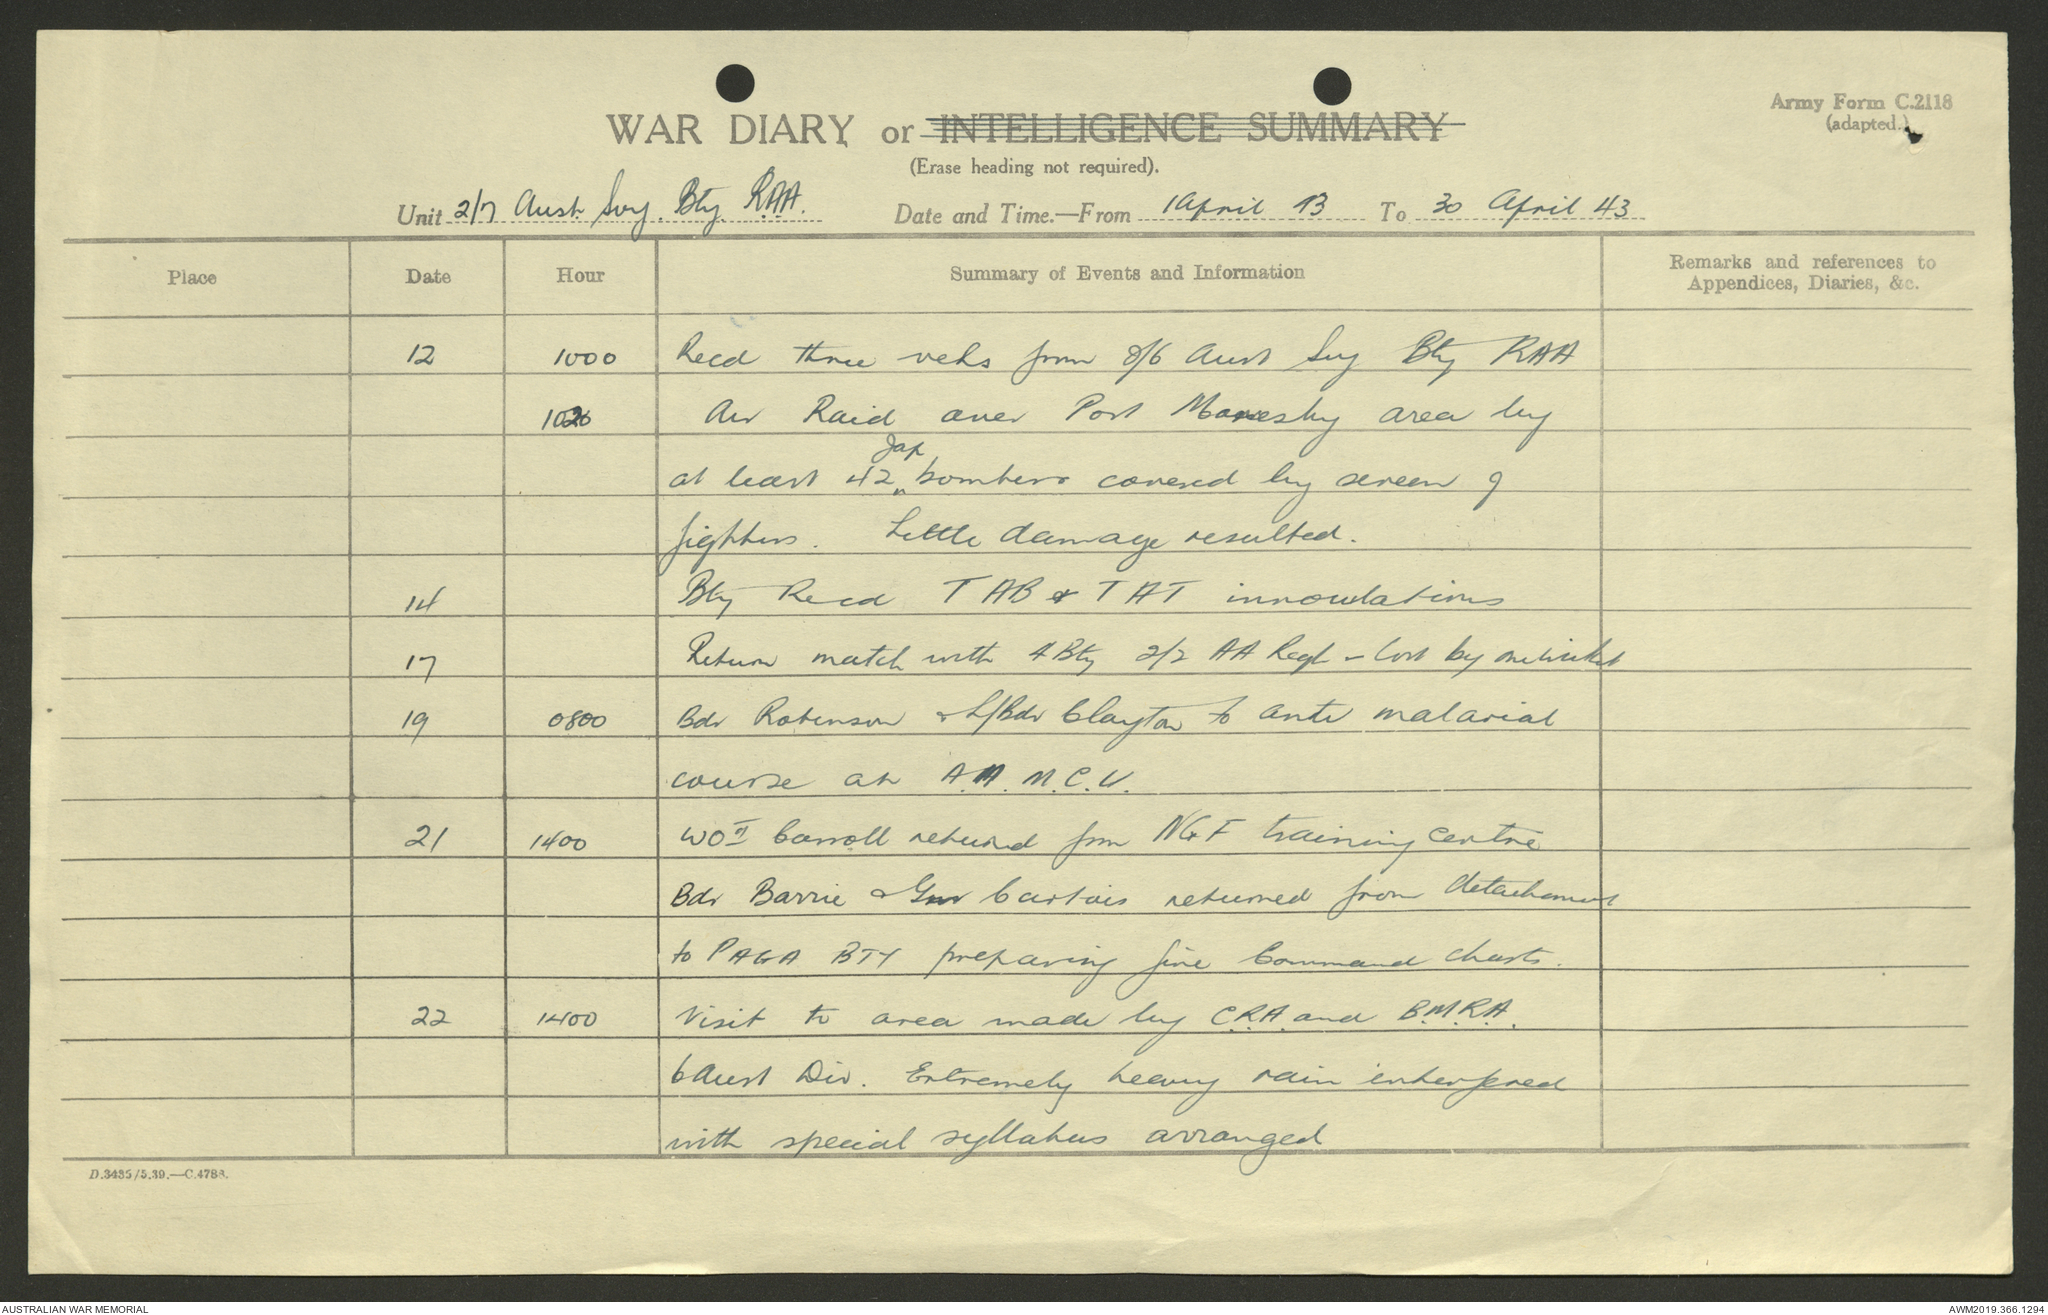 Army Form C.2118
(adapted.)
WAR DIARY or INTELLIGENCE SUMMARY
(Erase heading not required).
Unit 2/7 Aust Svy. Bty R.A.A. Date and Time.—From 1 April 43 To 30 April 43
Place Date Hour Summary of Events and Information Remarks and references to Appendices, Diaries, &c.
12 1000 Recd three vehs from 2/6 Aust Svy Bty RAA
1020 Air Raid over Port Moresby area by
at least 42 Jap bombers covered by screen of
fighters. Little damage resulted.
14 Bty Recd TAB & TAT innoculations
17 Return match with 4 Bty 2/2 AA Regt - lost by one wicket
19 0800 Bdr Robinson & L/Bdr Clayton to anti malarial
course at A.M.C.U.
21 1400 WO II Carroll returned from NGF training centre
Bdr Barrie & Gnr Cartois returned from detachment
to PAGA BTY preparing fire Command charts.
22 1400 Visit to area made by C.R.A. and B.M.R.A.
6 Aust Div. Extremely heavy rain interfered
with special syllabus arranged
D.3435/5.39.—C.4788.
AUSTRALIAN WAR MEMORIAL
AWM2019.366.1294